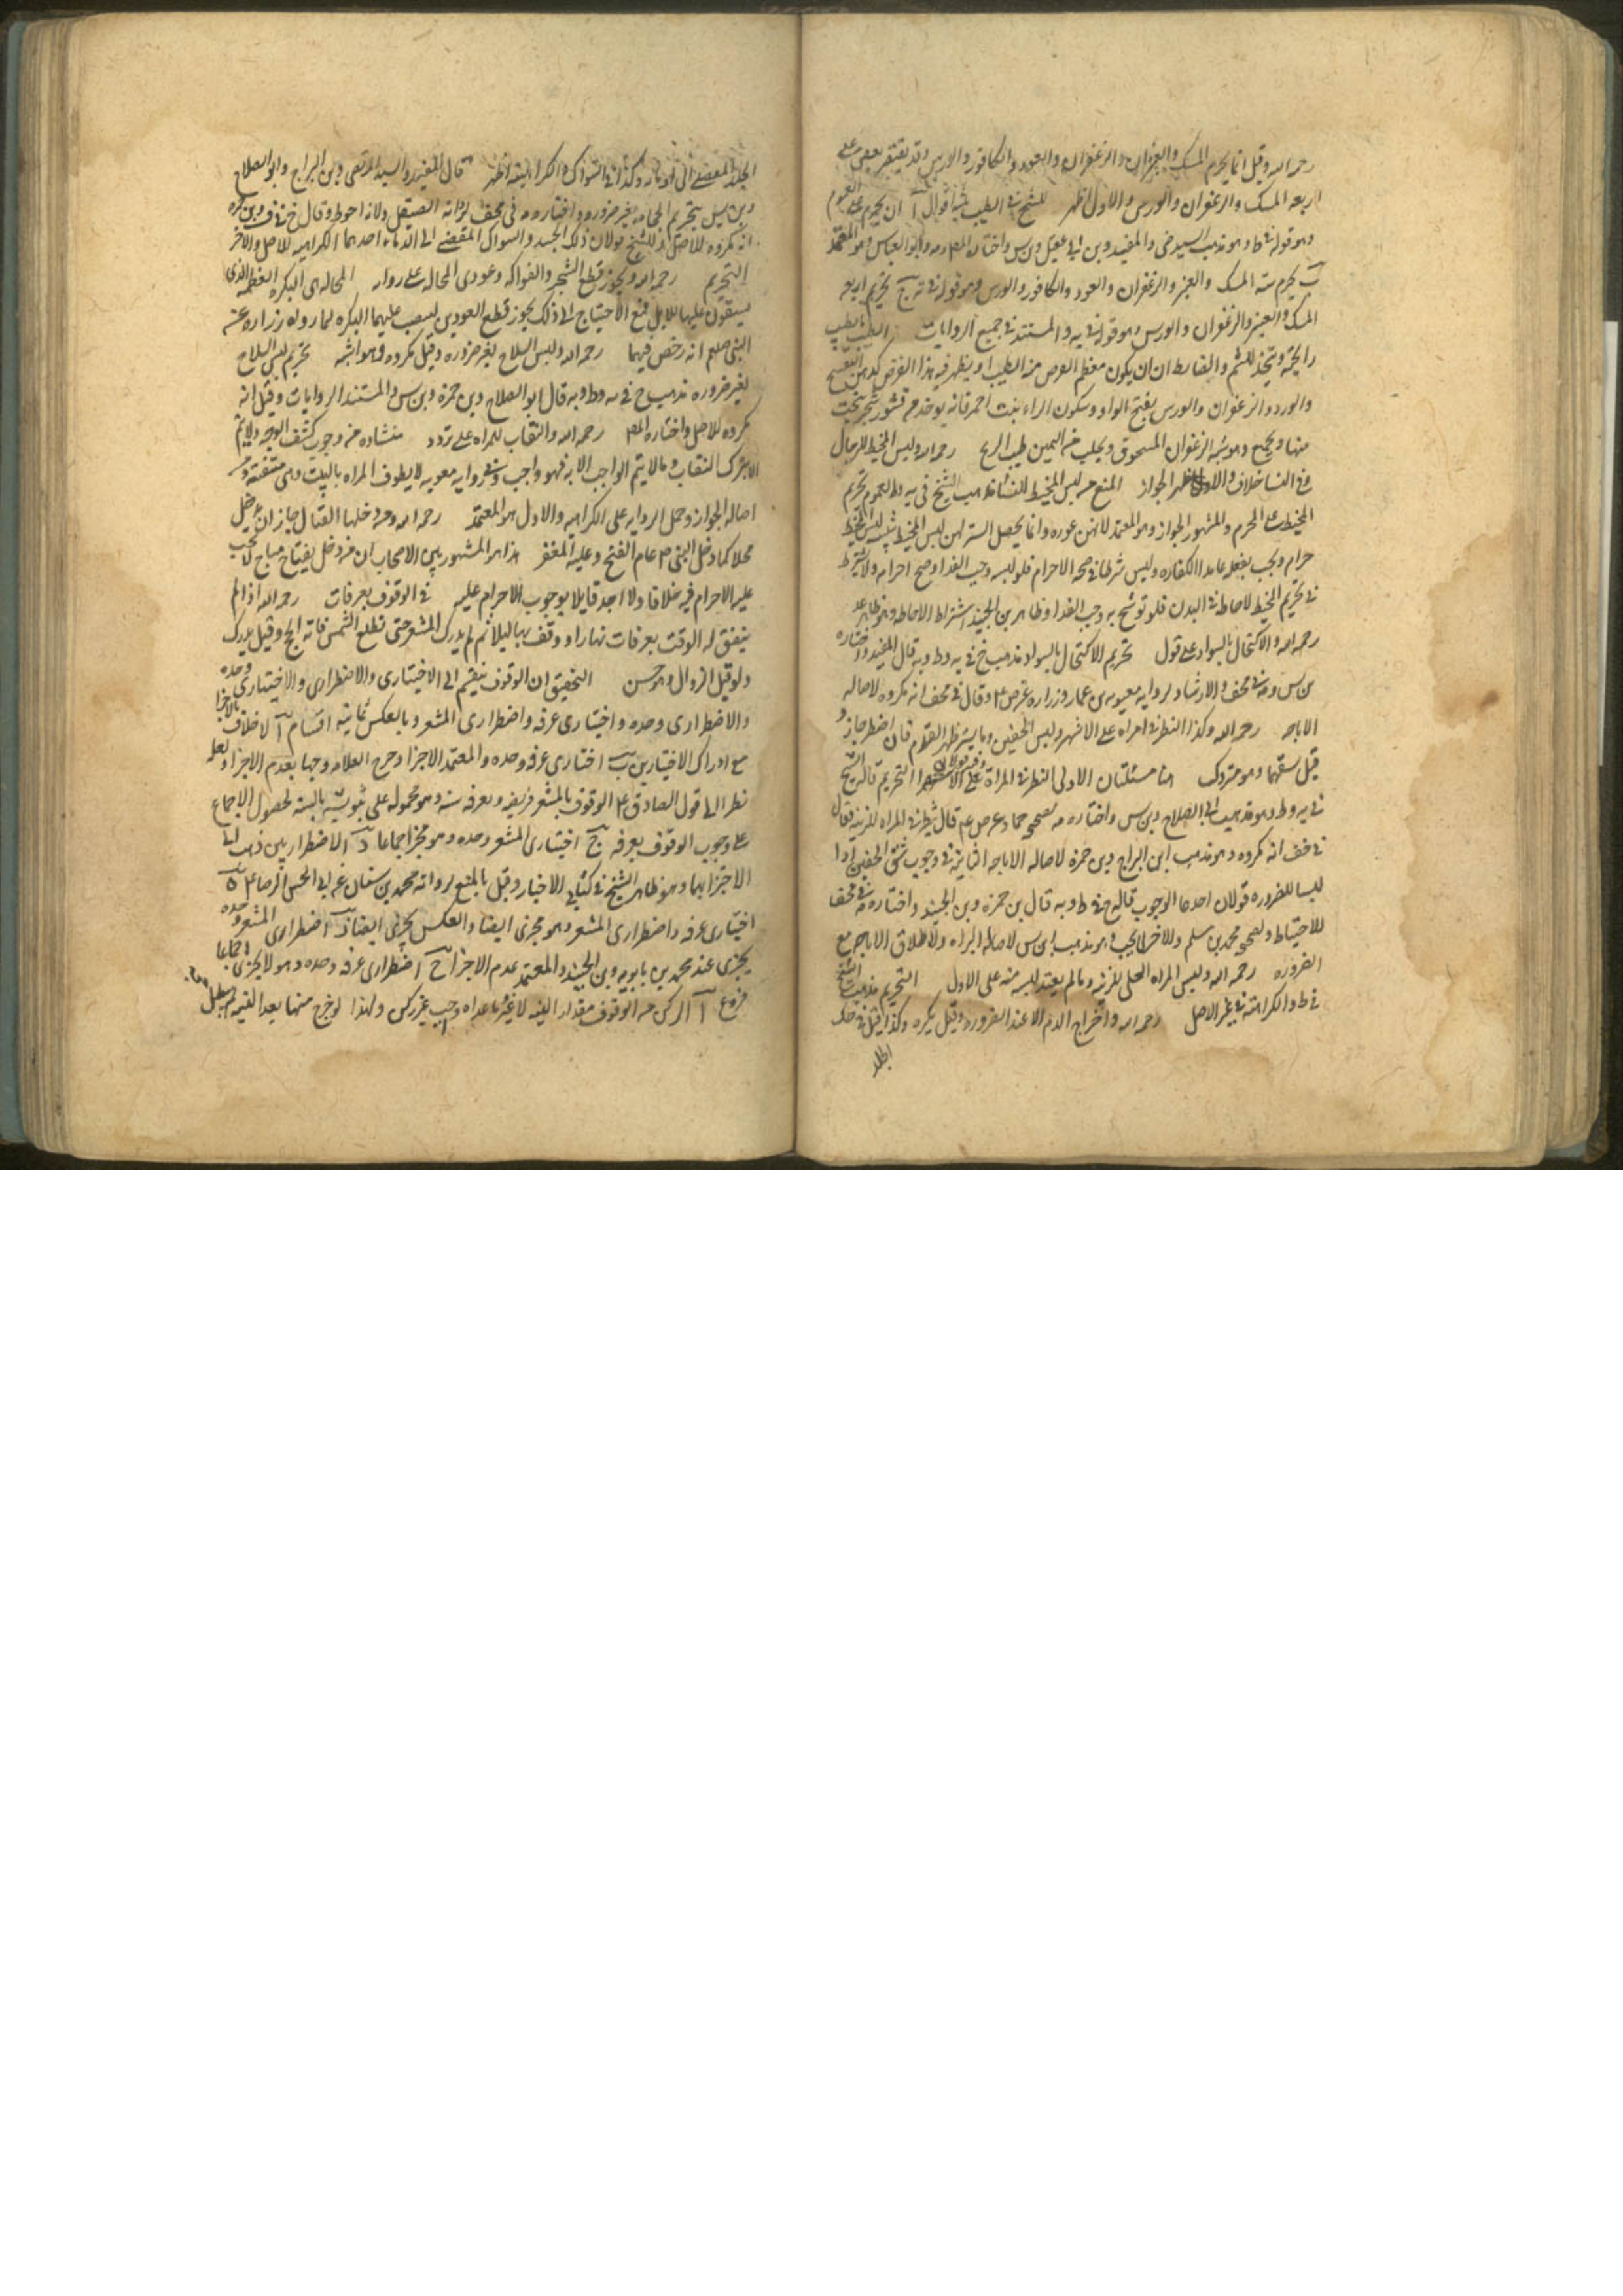 رحمه الله وقيل انما يحرم المسك والعنبر والزعفران والعود والكافور والورس وقد يقتصر بعض على
اربعه المسك والزعفران والورس والاول اظهر للشيخ في الطيب اقوال آ ان يحرم على العموم
وهو قوله في ط وهو مذهب السيد رضى والمفيد وبن ابى عقيل وبن س واختاره المص وابو العباس وهو المعتمد
ب يحرم سته المسك والعنبر والزعفران والعود والكافور والورس وهو قوله في يه ج تحريم اربعه
المسك والعنبر والزعفران والورس وهو قوله في يب والمستند في جميع الروايات الطيب ما يطيب
رايحته ويتخذ للشم والضابط ان يكون معظم الغرض منه الطيب او يظهر فيه هذا الغرض كدهن البنفسج
والورد والزعفران والورس بفتح الواو وسكون الراء نبت احمر قانى يوخذ من قشور شجر ينحت
منها ويجمع وهو يشبه الزعفران المسحوق ويجلب من اليمن طيب الريح رحمه الله ولبس المخيط للرجال
وفي النسا خلاف والاول اظهر الجواز المنع من لبس المخيط للنسا مذهب الشيخ في يه وط لعموم تحريم
المخيط على المحرم والمشهور الجواز وهو المعتمد لانهن عوره وانما يحصل الستر لهن بلبس المخيط لبس المخيط
حرام ويجب بفعله عامدا الكفاره وليس شرطا في صحه الاحرام فلو لبسه وجب الفدا وصح احرامه ولا يشترط
في تحريم المخيط الاحاطه في البدن فلو توشح به وجب الفدا وظاهر بن الجنيد اشتراط الاحاطه
رحمه الله والاكتحال بالسواد على قول تحريم الاكتحال بالسواد مذهب خ في يه وط وبه قال المفيد واختاره
بن س ومه في مختلف والارشاد لروايه معويه بن عمار وزراره عن ص ع وقال في مخف انه مكروه لاصاله
الاباحه رحمه الله وكذا النظر في المراه على الاشهر ولبس الخفين وما يستر ظهر القدم فان اضطر جاز و
قيل يشقهما وهو متروك هنا مسئلتان الاولى النظر في المراة على الاشهر التحريم قاله الشيخ
في يه وط وهو مذهب ابى الصلاح وبن س واختاره مه لصحيحه حماد عن ص ع قال لا تنظر في المراه للزينه وقال
في خف انه مكروه وهو مذهب ابن البراج وبن حمزه لاصاله الاباحه الثانيه في وجوب شق الخفين اذا
لبسا للضروره قولان احدهما الوجوب قاله خ في ط وبه قال بن حمزه وبن الجنيد واختاره مه في مختلف
للاحتياط ولصحيحه محمد بن مسلم والاخر لا يجب وهو مذهب بن س لاصاله البراه ولاطلاق الاباحه مع
الضروره رحمه الله ولبس المراه الحلى للزينه وما لم يعتد لبسه منه على الاول التحريم مذهب الشيخ
في ط والكراهه في غير الاصل رحمه الله واخراج الدم الا عند الضروره وقيل يكره وكذا قيل في حك
الجلد
الجلد المفضى الى ادمائه وكذا في السواك والكراهيه اظهر قال المفيد والسيد المرتضى وبن البراج وابو الصلاح
وبن س بتحريم الحجامه بغير ضروره واختاره مه في مختلف لروايه الصيقل ولانه احوط وقال خ في ف وبن حمزه
انه مكروه للاصل ثم للشيخ قولان في ذلك الجسد والسواك المفضى الى الدما احدهما الكراهيه للاصل والاخر
التحريم رحمه الله ويجوز قطع الشجر والفواكه وعودى المحاله على روايه المحاله هى البكره العظيمه الذى
يستقون عليها للابل فمع الاحتياج الى ذلك يجوز قطع العودين لينصب عليهما البكره لما رواه زراره عن
النبى صلعم انه رخص فيهما رحمه الله ولبس السلاح لغير ضروره وقيل مكروه وهو اشبه تحريم لبس السلاح
لغير ضروره مذهب خ في يه وط وبه قال ابو الصلاح وبن حمزه وبن س والمستند الروايات وقيل انه
مكروه للاصل واختاره المص رحمه الله والنقاب للمراه على تردد منشاوه من وجوب كشف الوجه ولا يتم
الا بترك النقاب وما لا يتم الواجب الا به فهو واجب وفي روايه معويه لا يطوف المراه بالبيت وهى متنقبه ومن
اصاله الجواز وحمل الروايه على الكراهيه والاول هو المعتمد رحمه الله ومن دخلها لقتال جاز ان يدخل
محلا كما دخل النبى ص عام الفتح وعليه المغفر هذا هو المشهور بين الاصحاب ان من دخل لقتال مباح لا يجب
عليه الاحرام فيه خلافا ولا اجد قايلا بوجوب الاحرام عليه في الوقوف بعرفات رحمه الله اذا لم
يتفق له الوقت بعرفات نهارا ووقف بها ليلا ثم لم يدرك المشعر حتى تطلع الشمس فاته الحج وقيل يدرك
ولو قبل الزوال وهو حسن التحقيق ان الوقوف ينقسم الى الاختيارى والاضطرارى والاختيارى وحده
والاضطرارى وحده واختيارى عرفه واضطرارى المشعر وبالعكس ثمانيه اقسام آ لا خلاف بالاجزا
مع ادراك الاختيارين ب اختيارى عرفه وحده والمعتمد الاجزا وخرج العلامه وجها بعدم الاجزا ولعله
نظر الى قول الصادق ع الوقوف بالمشعر فريضه وبعرفه سنه وهو محمول على ثبوته بالسنه لحصول الاجماع
على وجوب الوقوف بعرفه ج اختيارى المشعر وحده وهو مجز اجماعا د الاضطراريين ذهب الى
الاجتزا بهما وهو ظاهر الشيخ في كتابى الاخبار وقيل بالمنع لروايه محمد بن سنان عن ابى الحسن الرضا ع ه
اختيارى عرفه واضطرارى المشعر وهو مجزى ايضا و العكس يجزى ايضا ز اضطرارى المشعر وحده
يجزى عند محمد بن بابويه وبن الجنيد والمعتمد عدم الاجزا ح اضطرارى عرفه وحده وهو لا يجزى اجماعا
فروع آ الركن من الوقوف مقدار النيه لا غير وما عداه وجب غير ركن ولهذا لو خرج منها بعد النيه لم يبطل